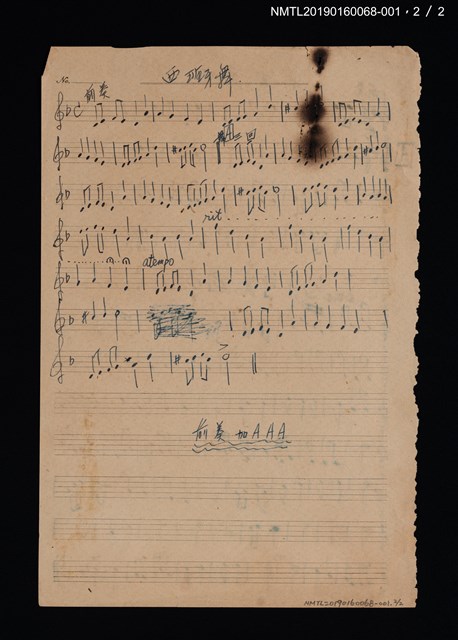 NMTL20190160068-001，2 / 2
No.
西班牙舞
前奏
A三回
rit
a tempo
前奏 加 A A A
NMTL20190160068-001. 2/2